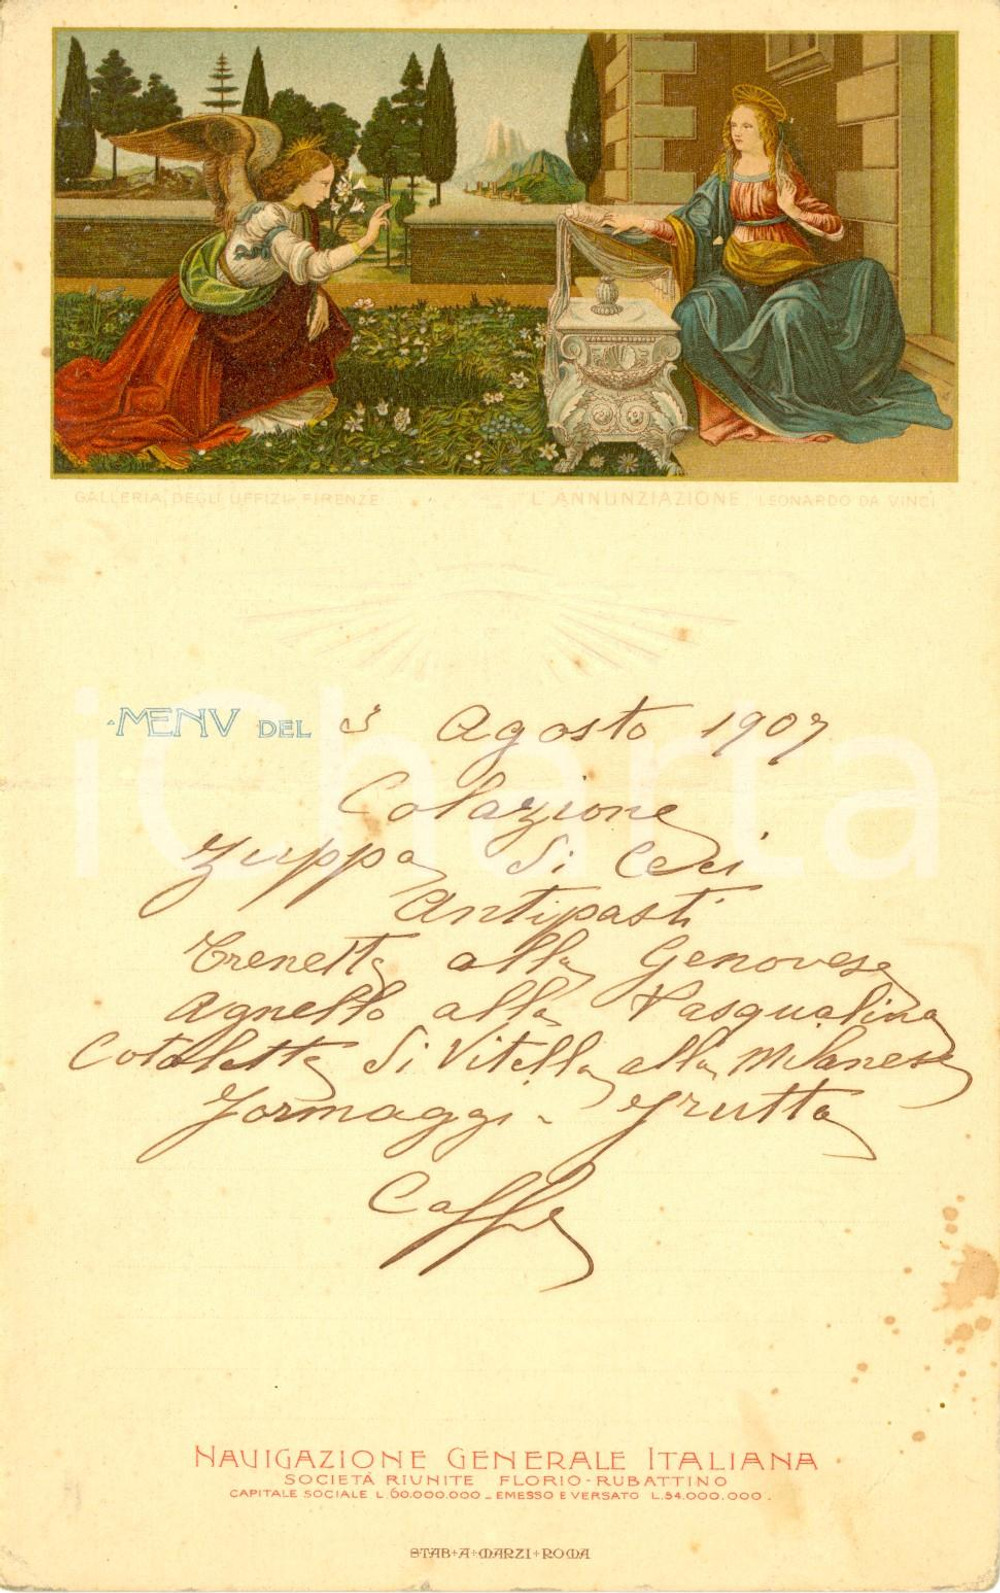 GALLERIA DEGLI UFFIZI - FIRENZE L'ANNUNZIAZIONE LEONARDO DA VINCI
MENV DEL 3 Agosto 1907
Colazione
Zuppa di Ceci
Antipasti
Trenette alla Genovese
Agnello alla Pasqualina
Cotolette di Vitella alla Milanese
Formaggi - Frutta
Caffe
iCharta
NAVIGAZIONE GENERALE ITALIANA
SOCIETÀ RIUNITE FLORIO-RUBATTINO
CAPITALE SOCIALE L. 60.000.000 - EMESSO E VERSATO L. 54.000.000.
STAB + A + MARZI + ROMA